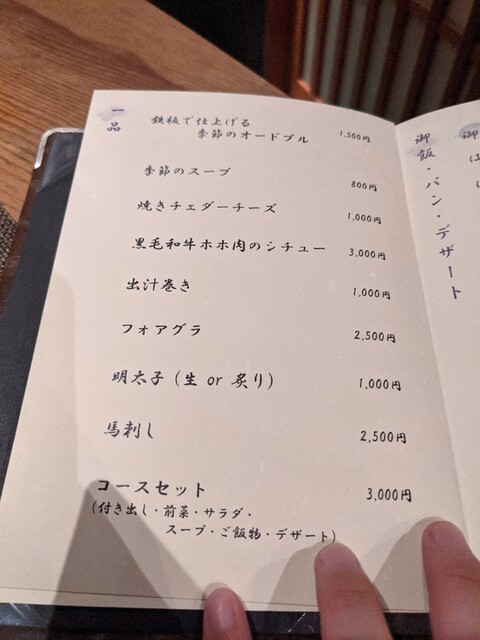 一品
鉄板で仕上げる
季節のオードブル 1,500円
季節のスープ 800円
焼きチェダーチーズ 1,000円
黒毛和牛ホホ肉のシチュー 3,000円
出汁巻き 1,000円
フォアグラ 2,500円
明太子（生 or 炙り） 1,000円
馬刺し 2,500円
コースセット 3,000円
(付き出し・前菜・サラダ・
スープ・ご飯物・デザート)
御飯・パン・デザート
御